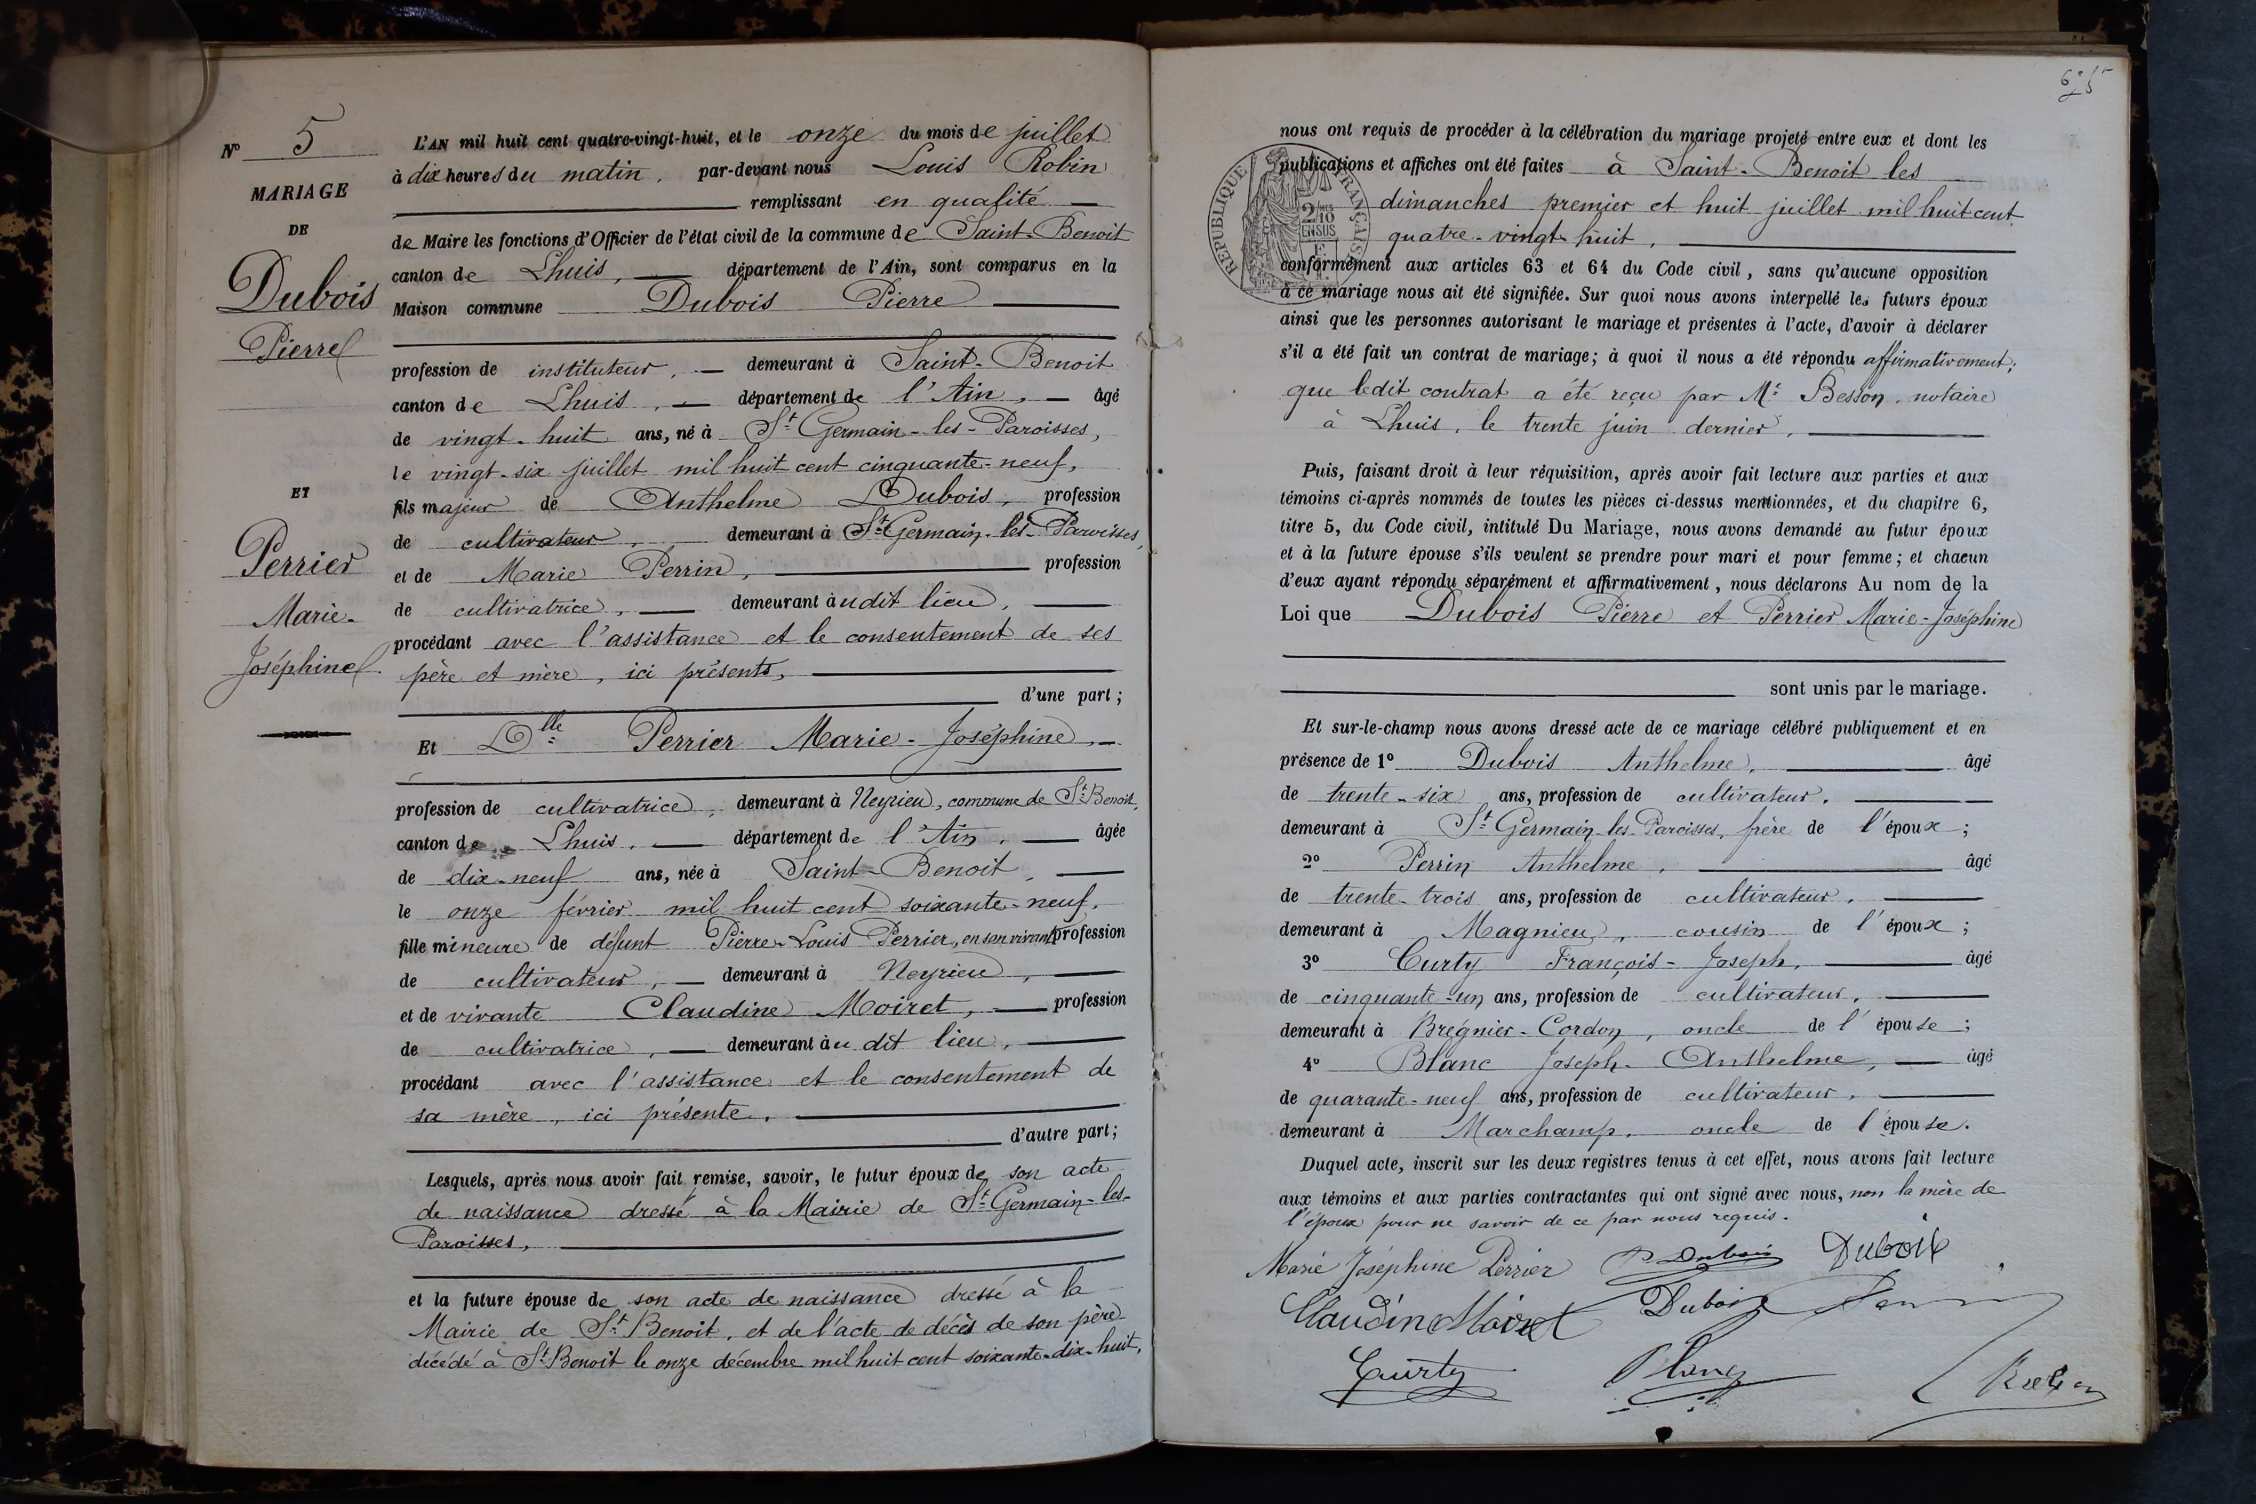 N° 5
MARIAGE
DE
Dubois
Pierre
ET
Perrier
Marie-
Joséphine
L'AN mil huit cent quatre-vingt-huit, et le onze du mois de juillet
à dix heures du matin, par-devant nous Louis Robin
remplissant en qualité
de Maire les fonctions d'Officier de l'état civil de la commune de Saint-Benoit
canton de Lhuis, département de l'Ain, sont comparus en la
Maison commune Dubois Pierre
profession de instituteur, demeurant à Saint-Benoit
canton de Lhuis, département de l'Ain, âgé
de vingt-huit ans, né à St Germain-les-Paroisses,
le vingt-six juillet mil huit cent cinquante-neuf,
fils majeur de Anthelme Dubois, profession
de cultivateur, demeurant à St Germain-les-Paroisses,
et de Marie Perrin, profession
de cultivatrice, demeurant àudit lieu,
procédant avec l'assistance et le consentement de ses
père et mère, ici présents,
d'une part;
Et Dlle Perrier Marie-Joséphine,
profession de cultivatrice, demeurant à Neyrieu, commune de St Benoit,
canton de Lhuis, département de l'Ain, âgée
de dix-neuf ans, née à Saint-Benoit,
le onze février mil huit cent soixante-neuf,
fille mineure de défunt Pierre-Louis Perrier, en son vivant profession
de cultivateur, demeurant à Neyrieu,
et de vivante Claudine Moiret, profession
de cultivatrice, demeurant àu dit lieu,
procédant avec l'assistance et le consentement de
sa mère, ici présente,
d'autre part;
Lesquels, après nous avoir fait remise, savoir, le futur époux de son acte
de naissance dressé à la Mairie de St Germain-les-
Paroisses,
et la future épouse de son acte de naissance dressé à la
Mairie de St Benoit, et de l'acte de décès de son père
décédé à St Benoit le onze décembre mil huit cent soixante-dix-huit,
nous ont requis de procéder à la célébration du mariage projeté entre eux et dont les
publications et affiches ont été faites à Saint-Benoit les
dimanches premier et huit juillet mil huit cent
quatre-vingt-huit,
RÉPUBLIQUE FRANÇAISE
2/10
EN SUS
conformément aux articles 63 et 64 du Code civil, sans qu'aucune opposition
à ce mariage nous ait été signifiée. Sur quoi nous avons interpellé les futurs époux
ainsi que les personnes autorisant le mariage et présentes à l'acte, d'avoir à déclarer
s'il a été fait un contrat de mariage; à quoi il nous a été répondu affirmativement;
que ledit contrat a été reçu par Me Besson, notaire
à Lhuis, le trente juin dernier,
Puis, faisant droit à leur réquisition, après avoir fait lecture aux parties et aux
témoins ci-après nommés de toutes les pièces ci-dessus mentionnées, et du chapitre 6,
titre 5, du Code civil, intitulé Du Mariage, nous avons demandé au futur époux
et à la future épouse s'ils veulent se prendre pour mari et pour femme; et chacun
d'eux ayant répondu séparément et affirmativement, nous déclarons Au nom de la
Loi que Dubois Pierre et Perrier Marie-Joséphine
sont unis par le mariage.
Et sur-le-champ nous avons dressé acte de ce mariage célébré publiquement et en
présence de 1° Dubois Anthelme, âgé
de trente-six ans, profession de cultivateur,
demeurant à St Germain-les-Paroisses, frère de l'époux;
2° Perrin Anthelme, âgé
de trente-trois ans, profession de cultivateur,
demeurant à Magnieu, cousin de l'époux;
3° Curty François-Joseph, âgé
de cinquante-un ans, profession de cultivateur,
demeurant à Brégnier-Cordon, oncle de l'épouse;
4° Blanc Joseph-Anthelme, âgé
de quarante-neuf ans, profession de cultivateur,
demeurant à Marchamp, oncle de l'épouse.
Duquel acte, inscrit sur les deux registres tenus à cet effet, nous avons fait lecture
aux témoins et aux parties contractantes qui ont signé avec nous, non la mère de
l'époux pour ne savoir de ce par nous requis.
Marie Joséphine Perrier P. Dubois Dubois
Claudin Moiret Dubois
Curty Blanc Robin